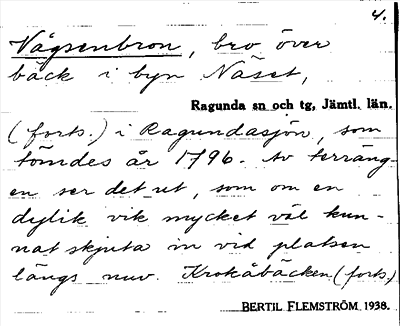 4.
Vågsenbron, bro över
bäck i byn Näset,
Ragunda sn och tg, Jämtl. län.
(forts.) i Ragundasjön, som
tömdes år 1796. Av terräng-
en ser det ut, som om en
dylik vik mycket väl kun-
nat skjuta in vid platsen
längs nuv. Krokåbäcken (forts.)
BERTIL FLEMSTRÖM 1938.